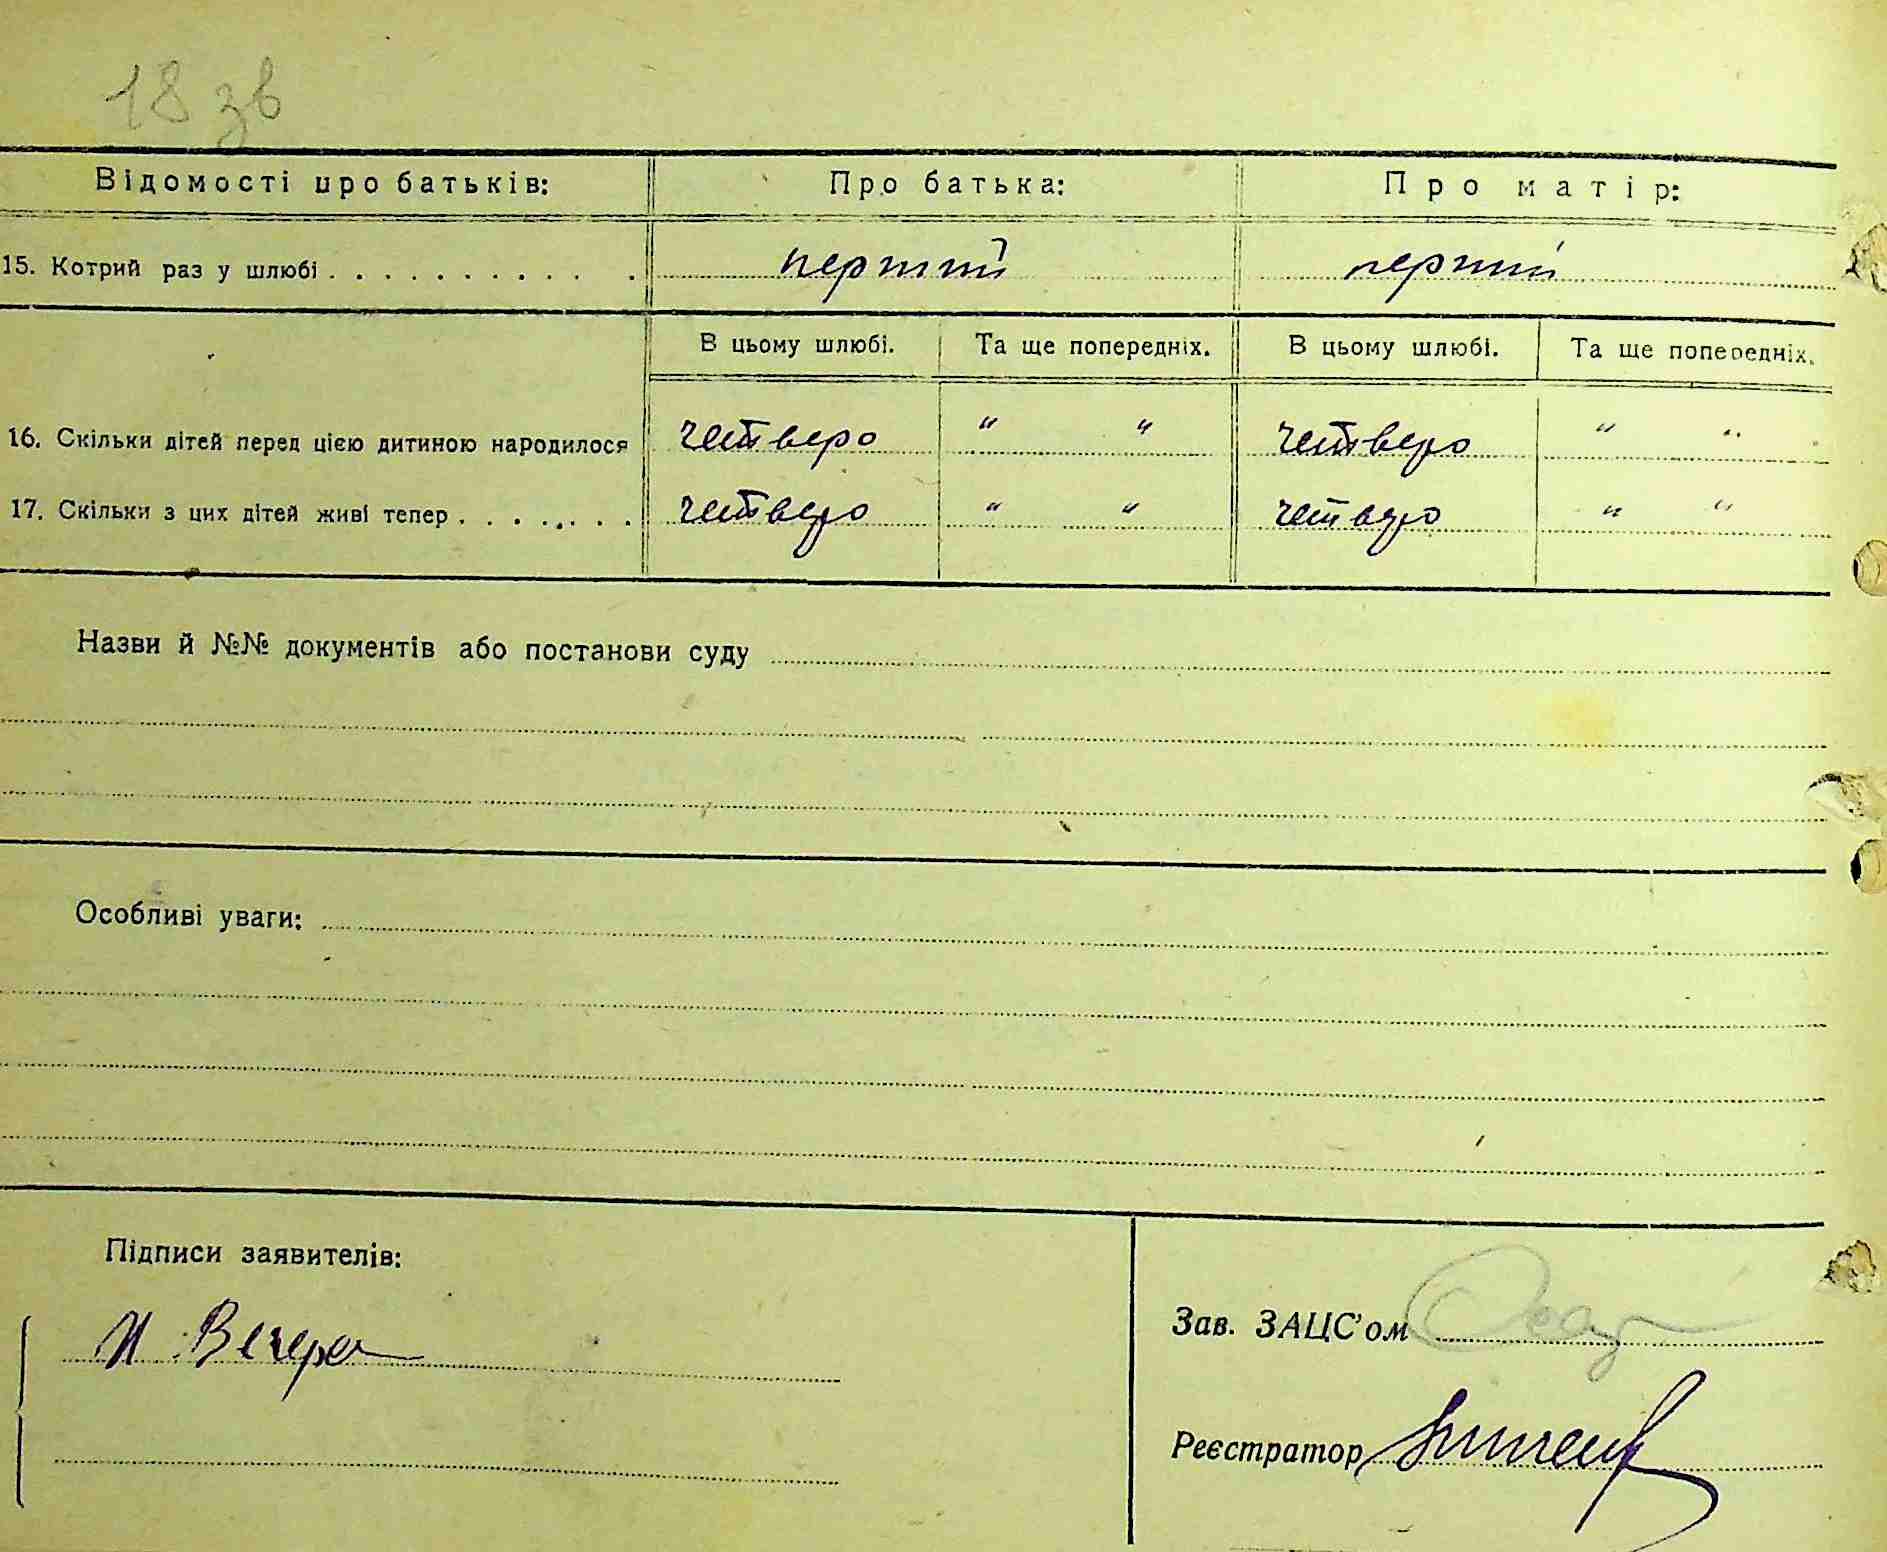 18 зв
Відомості про батьків: Про батька: Про матір:
15. Котрий раз у шлюбі . . . . . . . . . . . перший перший
В цьому шлюбі. Та ще попередніх. В цьому шлюбі. Та ще попередніх.
16. Скільки дітей перед цією дитиною народилося четверо " " четверо " "
17. Скільки з цих дітей живі тепер . . . . . . . четверо " " четверо " "
Назви й №№ документів або постанови суду
Особливі уваги:
Підписи заявителів:
И Вечера
Зав. ЗАЦС'ом
Реєстратор